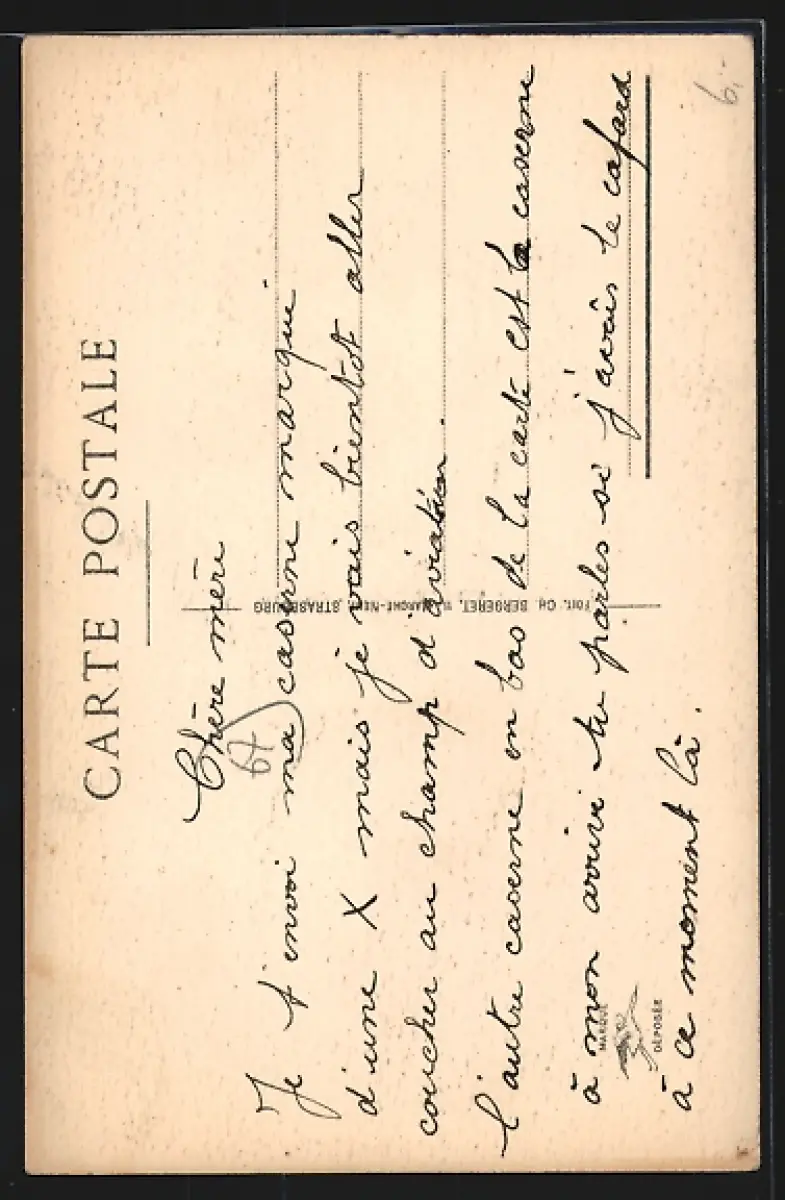 CARTE POSTALE
Chère mère
67
Je t'envoi ma caserne marqué
d'une X mais je vais bientôt aller
coucher au champ d'aviation.
l'autre caserne en bas de la carte est la caserne
à mon arrivé tu parles si j'avais le cafard
à ce moment là.
MARQUE
DÉPOSÉE
CH. BERGERET, STRASBOURG
6.-